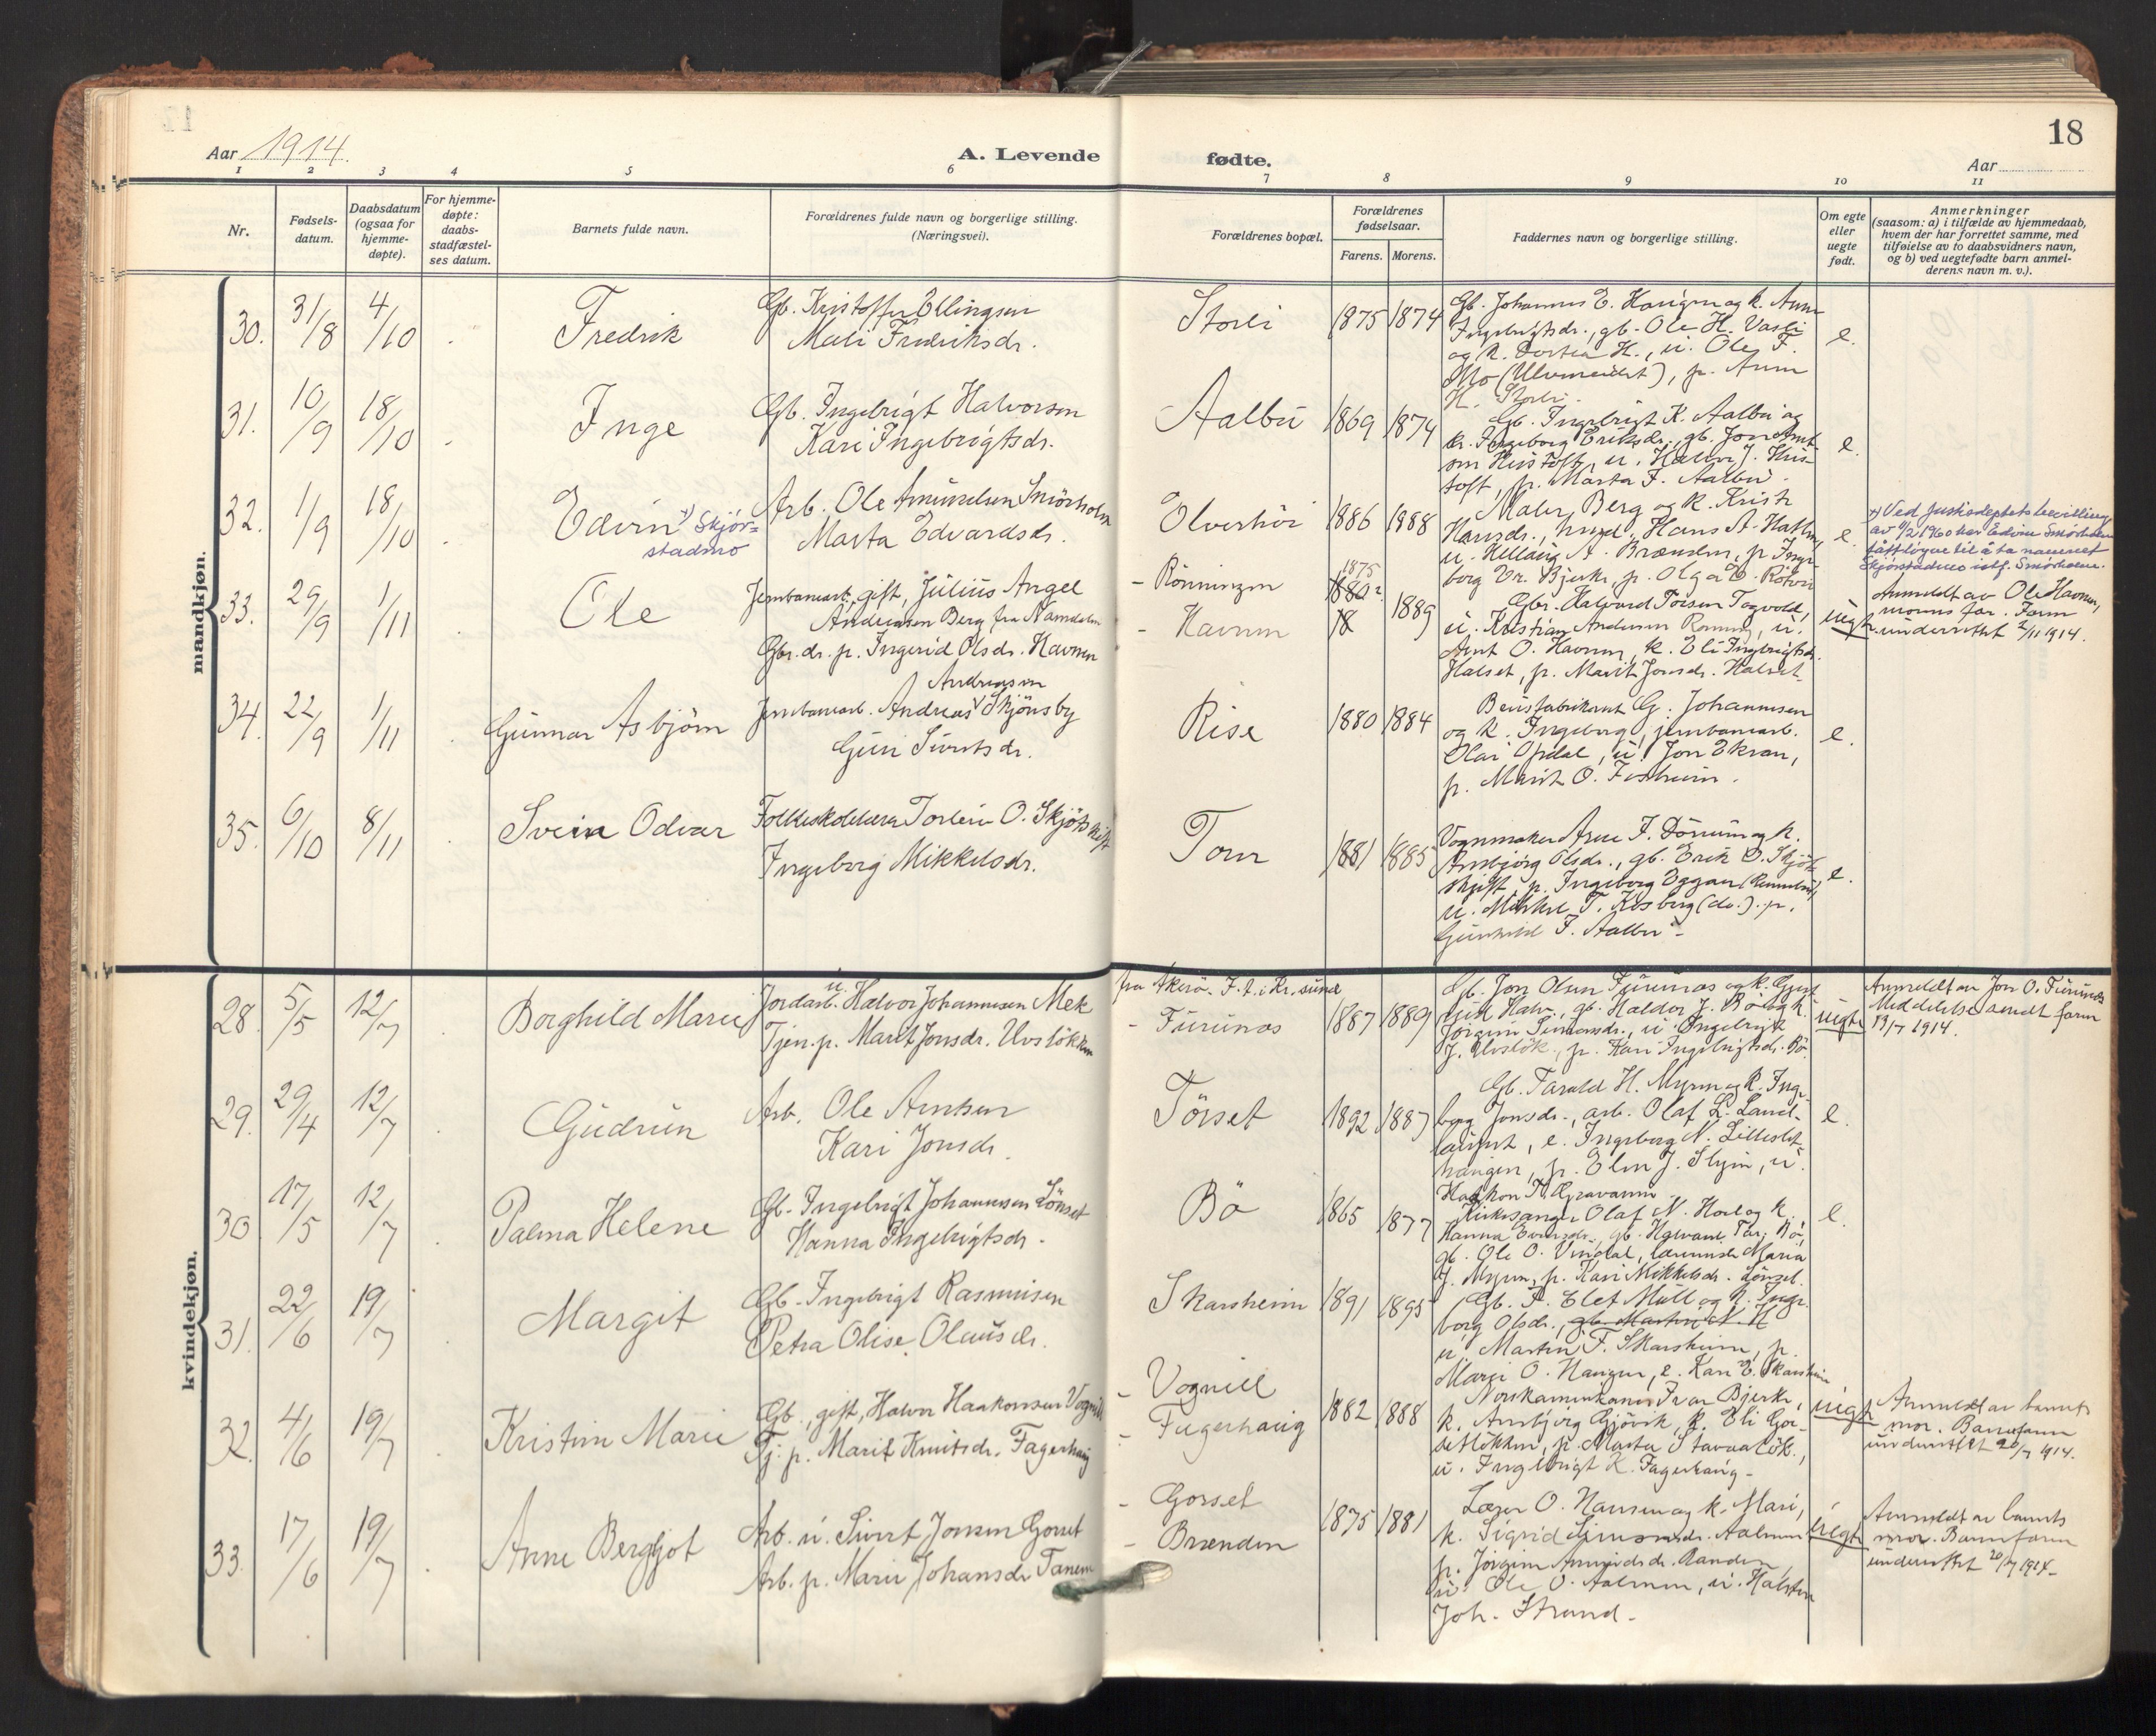 18
Aar 1914.
A. Levende fødte.
Aar
1 2 3 4 5 6 7 8 9 10 11
Nr.
Fødsels-
datum.
Daabsdatum
(ogsaa for
hjemme-
døpte).
For hjemme-
døpte:
daabs-
stadfæstel-
ses datum.
Barnets fulde navn.
Forældrenes fulde navn og borgerlige stilling.
(Næringsvei).
Forældrenes bopæl.
Forældrenes
fødselsaar.
Farens. Morens.
Faddernes navn og borgerlige stilling.
Om egte
eller
uegte
født.
Anmerkninger
(saasom: a) i tilfælde av hjemmedaab,
hvem der har forrettet samme, med
tilføielse av to daabsvidners navn,
og b) ved uegtefødte barn anmel-
derens navn m. v.).
mandkjøn.
30. 31/8 4/10 Fredrik
Gb. Kristoffer Ellingsen
Mali Fredriksdr.
Storli 1875 1874
Gb. Johannes E. Haugen og k. Anne
Ingebrigtsdr., gb. Ole H. Vasli
og k. Dortea H., u. Ole F.
Mo (Ulvmeidet), p. Anne
H. Storli.
e.
31. 10/9 18/10 Inge
Gb. Ingebrigt Halvorsen
Kari Ingebrigtsdr.
Aalbu 1869 1874
Gb. Ingebrigt K. Aalbu og
k. Ingeborg Eriksdr., gb. Jon
u. Halvor J.
toft, p. Marta F. Aalbu.
e.
32. 1/9 18/10 Edvin x) Skjør=
stadmo
Arb. Ole Amundsen Smörholm
Marta Edvardsdr.
Elverhöi 1886 1888
Maler Berg og k. Kristi
Hansdr., Hans A.
u. A. Brænden, p. Inge
borg Bjerke, p. Olga
e.
x) Ved Justisdeptets bevilling
av 9/2 1960 har Edvin Smørholm
fått løyve til å ta navnet
Skjørstadmo istf. Smørholm.
33. 29/9 1/11 Ole
Jernbanearb., gift, Julius Angel
Andreasen Berg fra Namdalen
Gbr. dr. p. Ingerid Olsdr. Havnen
- Rönningen
- Havnen
1875
1880? 1889
18
Gbr. Halvard Torsen Tagvold,
u. Kristian Andersen Rönning, u.
Arnt O. Havnen, k. Eli Ingebrigtsdr.
Halset, p. Marit Jonsdr. Halset.
uegte
Anmeldt av Ole Havnen,
morens far. Faren
underrettet 2/11 1914.
34. 22/9 1/11 Gunnar Asbjörn
Andreasen
Jernbanearb. Andreas Skjönsby
Guri Sivertsdr.
Rise 1880 1884
G. Johannesen
og k. Ingeborg, jernbanearb.
Olai Opdal, u. Jon Ekran,
p. Marit O. Fosheim.
e.
35. 6/10 8/11 Svein Odvar
Folkeskolelærer Torleiv O. Skjötskift
Ingeborg Mikkelsdr.
Torve 1881 1885
Vognmaker Arne F. Dörum og k.
Ambjörg Olsdr., gb. Erik O. Skjöt
skift, p. Ingeborg Eggan (Rennebu),
u. Mikkel T. Kosberg (do.). p.
Gunhild F. Aalbu -
e.
kvindekjøn.
28. 5/5 12/7 Borghild Marie
u.
Jordarb. Halvor Johannesen Mek
Tjen. p. Marit Jonsdr. Uvslökken
fra Akerö. F. t. i Kr.sund
- Furunæs 1887 1889
Gb. Jon Olsen Furunæs og k. Gjert
rud Halv., gb. Haldor J. Bö og k.
Jörgine Simonsdr., u. Ingebrigt
J. Uvslök., p. Kari Ingebrigtsdr. Bö
uegte
Anmeldt av Jon O. Furunæs
Meddelelse sendt faren
13/7 1914.
29. 29/4 12/7 Gudrun
Arb. Ole Arntsen
Kari Jonsdr.
Törset 1892 1887
Gb. Tarald H. Myren og k. Inge
borg Jonsdr., arb. Olaf L. Land-
, e. Ingeborg N. Lilleslet
haugen, p. Elen J. Slyin, u.
Haakon
e.
30 17/5 12/7 Palma Helene
Gb. Ingebrigt Johannesen Lönset
Hanna Ingebrigtsdr.
Bö 1865 1877
Kirkesanger Olaf N. Hoel og k.
Hanna gb. Halvard Tar. Bö,
gb. Ole O. Vindal, lærerinde Maria
J. Myren, p. Kari Mikkelsdr. Lönset.
e.
31. 22/6 19/7 Margit
Gb. Ingebrigt Rasmusen
Petra Olise Olausdr.
Skarsheim 1891 1895
Gb. P. Elef Mell og k. Inge
borg Olsdr., gb. Martin
u. Martin F. Skarsheim, p.
Mari O. Haugen, e. Kari E. Skarsheim
32. 4/6 19/7 Kristine Marie
Gb., gift, Halvor Haakonsen Vognill
Tj. p. Marit Knutsdr. Fagerhaug
- Vognill
- Fagerhaug
1882 1888
Norskamerikaner Ivar Bjerke,
k. Ambjörg Gjörvik, k. Eli Gor-
setlökken, p. Marta Stavaalök.,
u. Ingebrigt K. Fagerhaug -
uegte
Anmeldt av barnets
mor. Barnefaren
underrettet 20/7 1914.
33. 17/6 19/7 Anne Bergljot
Arb. u. Sivert Jonsen Gorset
Arb. p. Marie Johansdr. Tanem
- Gorset
- Brænden
1875 1881
Lærer O. Hansen og k. Mari,
k. Sigrid Simonsdr. Aalmen
p. Jörgine Amundsdr. Aanden,
u. Ole O. Aalmen, u. Halsten
Joh. Strand -
uegte
Anmeldt av barnets
mor. Barnefaren
underrettet 20/7 1914.